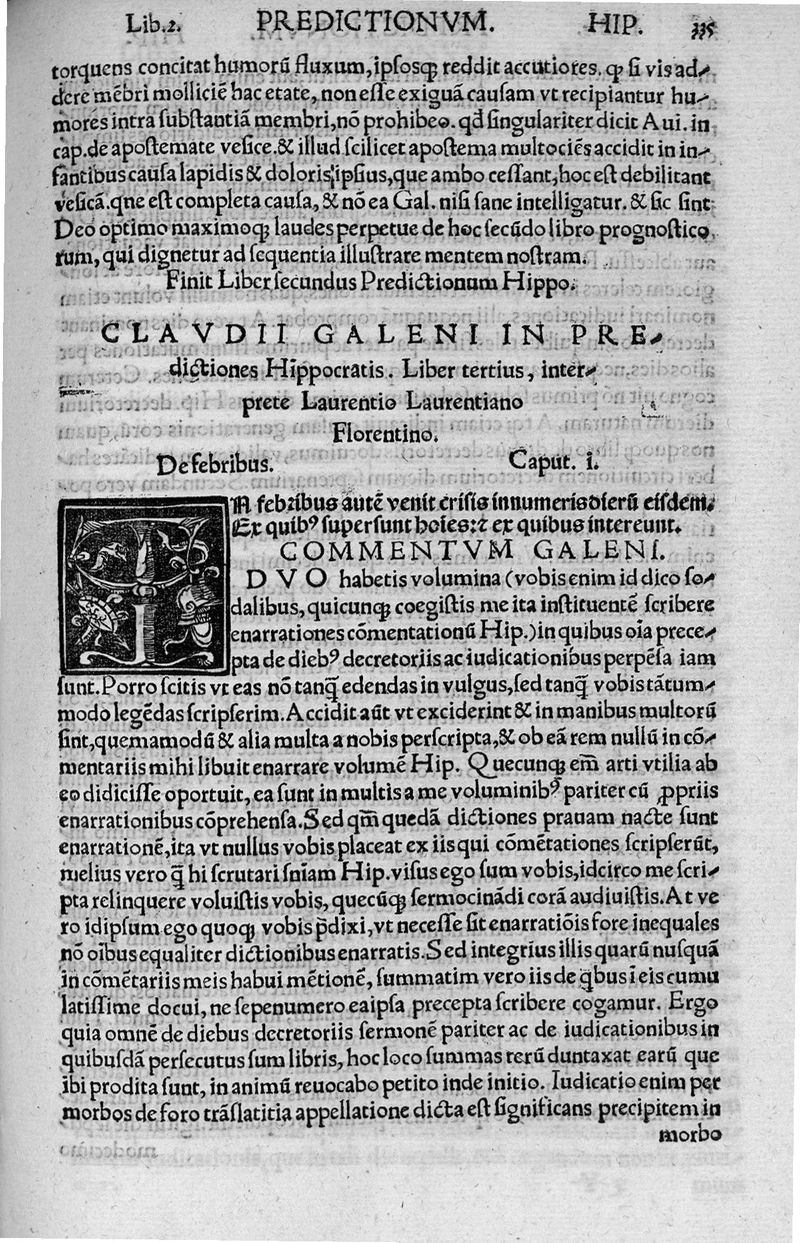 Lib.2. PREDICTIONVM. HIP. 335
torquens concitat humorũ fluxum, ipsosq̃ reddit accutiores. q̃ si vis ad-
dere mẽbri molliciẽ hac etate, non esse exiguã causam vt recipiantur hu-
mores intra substantiã membri, nõ prohibeo. qd̃ singulariter dicit Aui. in
cap. de apostemate vesice. & illud scilicet apostema multociẽs accidit in in-
fantibus causa lapidis & doloris ipsius, que ambo cessant, hoc est debilitant
vesicã. qne est completa causa, & nõ ea Gal. nisi sane intelligatur. & sic sint
Deo optimo maximoq̃ laudes perpetue de hoc secũdo libro prognostico
rum, qui dignetur ad sequentia illustrare mentem nostram.
Finit Liber secundus Predictionum Hippo.
CLAVDII GALENI IN PRE-
dictiones Hippocratis. Liber tertius, inter-
prete Laurentio Laurentiano
Florentino.
De febribus. Caput. i.
IN febribus autẽ venit crisis in numeris dierũ eisdem.
Ex quibꝰ supersunt hoies: ⁊ ex quibus intereunt.
COMMENTVM GALENI.
DVO habetis volumina (vobis enim id dico so-
dalibus, quicunq̃ coegistis me ita instituentẽ scribere
enarrationes cõmentationũ Hip.) in quibus oĩa prece-
pta de diebꝰ decretoriis ac iudicationibus perpẽsa iam
sunt. Porro scitis vt eas nõ tanq̃ edendas in vulgus, sed tanq̃ vobis tãtum-
modo legẽdas scripserim. Accidit aũt vt exciderint & in manibus multorũ
sint, quemamodũ & alia multa a nobis perscripta, & ob eã rem nullũ in cõ-
mentariis mihi libuit enarrare volumẽ Hip. Quecunq̃ em̃ arti vtilia ab
eo didicisse oportuit, ea sunt in multis a me voluminibꝰ pariter cũ ꝓpriis
enarrationibus cõprehensa. Sed qm̃ quedã dictiones prauam nacte sunt
enarrationẽ, ita vt nullus vobis placeat ex iis qui cõmẽtationes scripserũt,
melius vero q̃ hi scrutari sñiam Hip. visus ego sum vobis, idcirco me scri-
pta relinquere voluistis vobis, quecũq̃ sermocinãdi corã audiuistis. At ve
ro idipsum ego quoq̃ vobis p̃dixi, vt necesse sit enarratiõis fore inequales
nõ oĩbus equaliter dictionibus enarratis. Sed integrius illis quarũ nusquã
in cõmẽtariis meis habui mẽtionẽ, summatim vero iis de q̃bus ĩ eis cumu
latissime docui, ne sepenumero eaipsa precepta scribere cogamur. Ergo
quia omnẽ de diebus decretoriis sermonẽ pariter ac de iudicationibus in
quibusdã persecutus sum libris, hoc loco summas rerũ duntaxat earũ que
ibi prodita sunt, in animũ reuocabo petito inde initio. Iudicatio enim per
morbos de foro trãslatitia appellatione dicta est significans precipitem in
morbo